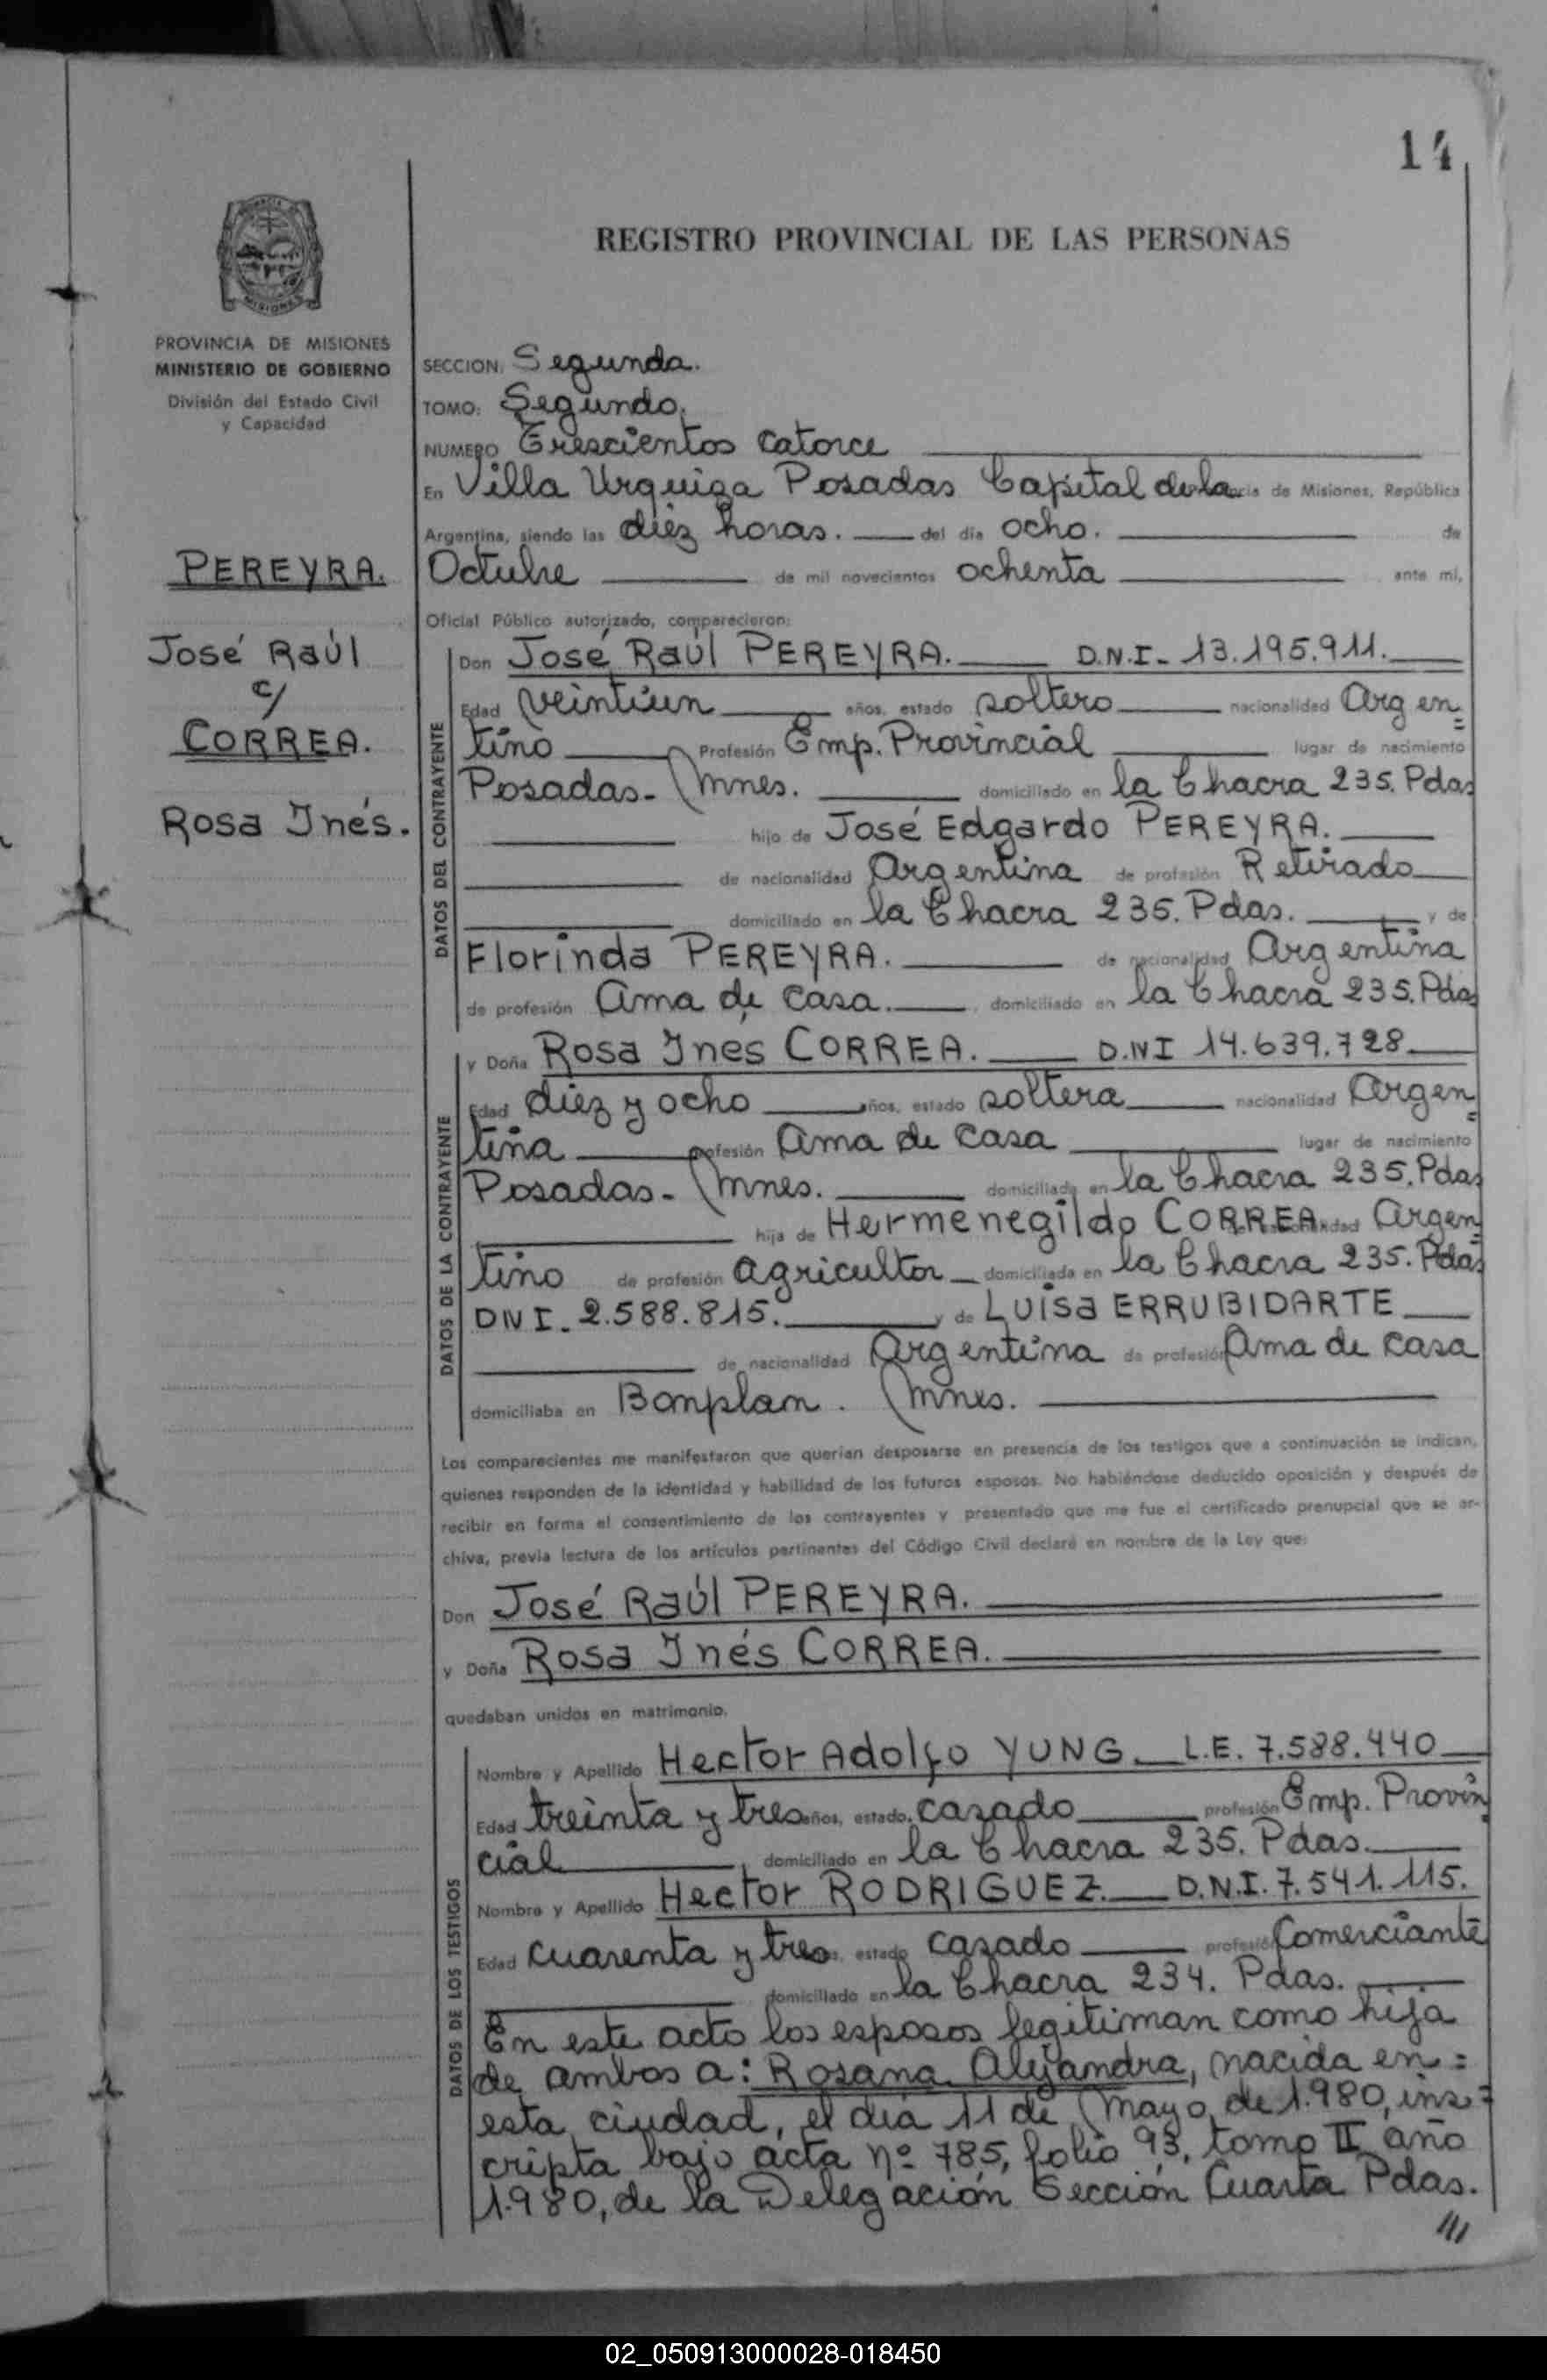 14
REGISTRO PROVINCIAL DE LAS PERSONAS
MISIONES
PROVINCIA DE MISIONES
MINISTERIO DE GOBIERNO
División del Estado Civil
y Capacidad
PEREYRA.
José Raúl
c/
CORREA.
Rosa Inés.
SECCION: Segunda.
TOMO: Segundo.
NUMERO Trescientos catorce
En Villa Urquiza Posadas Capital de la Provincia de Misiones, República
Argentina, siendo las diez horas. del día ocho. de
Octubre de mil novecientos ochenta ante mí,
Oficial Público autorizado, comparecieron:
DATOS DEL CONTRAYENTE
Don José Raúl PEREYRA. D.N.I- 13.195.911.
Edad veintiun años, estado soltero nacionalidad Argen=
tino Profesión Emp. Provincial lugar de nacimiento
Posadas- Mnes. domiciliado en la Chacra 235. Pdas
hijo de José Edgardo PEREYRA.
de nacionalidad Argentina de profesión Retirado
domiciliado en la Chacra 235. Pdas. y de
Florinda PEREYRA. de nacionalidad Argentina
de profesión Ama de casa. domiciliado en la Chacra 235. Pdas
DATOS DE LA CONTRAYENTE
y Doña Rosa Inés CORREA. D.NI 14.639.728
Edad diez y ocho años, estado soltera nacionalidad Argen=
tina profesión Ama de casa lugar de nacimiento
Posadas- Mnes. domiciliada en la Chacra 235. Pdas
hija de Hermenegildo CORREA. de nacionalidad Argen=
tino de profesión agricultor domiciliada en la Chacra 235. Pdas
DNI. 2.588.815. y de Luisa ERRUBIDARTE
de nacionalidad Argentina de profesión Ama de casa
domiciliaba en Bonplan. Mnes.
Los comparecientes me manifestaron que querían desposarse en presencia de los testigos que a continuación se indican,
quienes responden de la identidad y habilidad de los futuros esposos. No habiéndose deducido oposición y después de
recibir en forma el consentimiento de los contrayentes y presentado que me fue el certificado prenupcial que se ar-
chiva, previa lectura de los artículos pertinentes del Código Civil declaré en nombre de la Ley que:
Don José Raúl PEREYRA.
y Doña Rosa Inés CORREA.
quedaban unidos en matrimonio.
DATOS DE LOS TESTIGOS
Nombre y Apellido Hector Adolfo YUNG. L.E. 7.588.440
Edad treinta y tres años, estado. casado profesión Emp. Provin
cial domiciliado en la Chacra 235. Pdas.
Nombre y Apellido Hector RODRIGUEZ. D.N.I. 7.541.115.
Edad cuarenta y tres estado casado profesión Comerciante
domiciliado en la Chacra 234. Pdas.
En este acto los esposos legitiman como hija
de ambos a: Rosana Alejandra, nacida en=
esta ciudad, el día 11 de Mayo de 1.980, ins=
cripta bajo acta nº 785, folio 93, tomo II año
1.980, de la Delegación Sección Cuarta Pdas.
///
02_050913000028-018450